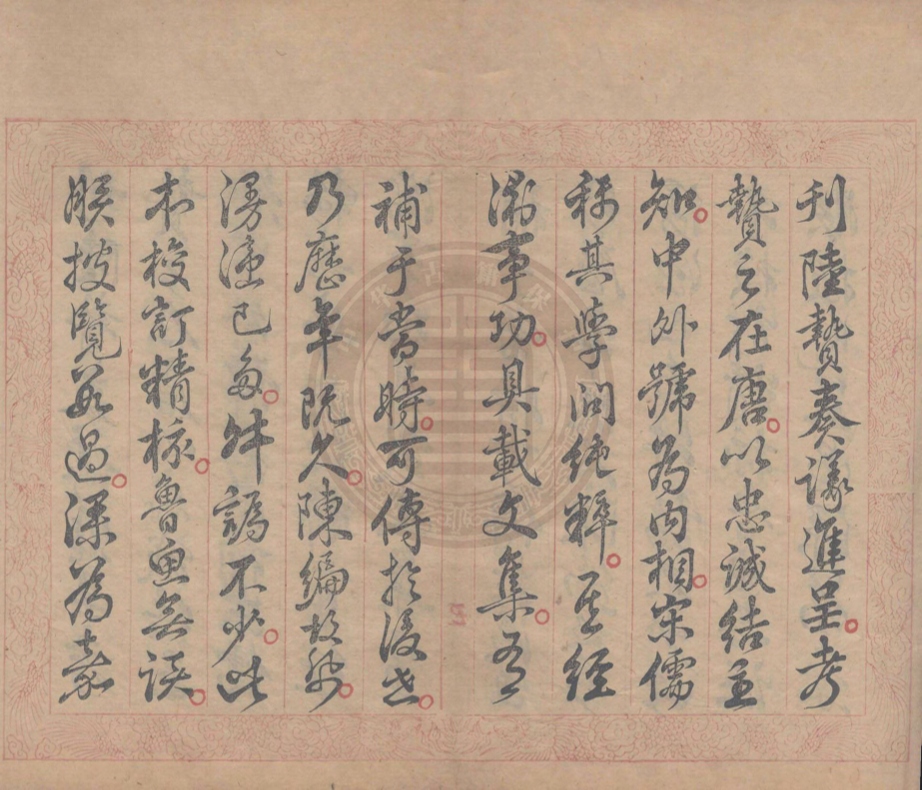 刊陸贄奏議進呈。考
贄之在唐。以忠誠結主
知。中外號為内相。宋儒
稱其學問純粹。其經
濟事功。具載文集。有
補于當時。可傳於後世。
乃歷年既久。陳編故
漫漶已多。舛譌不少。此
本校訂精核。魯魚無誤。
朕披覽過。深為嘉